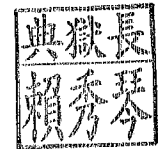 典獄長
賴秀琴